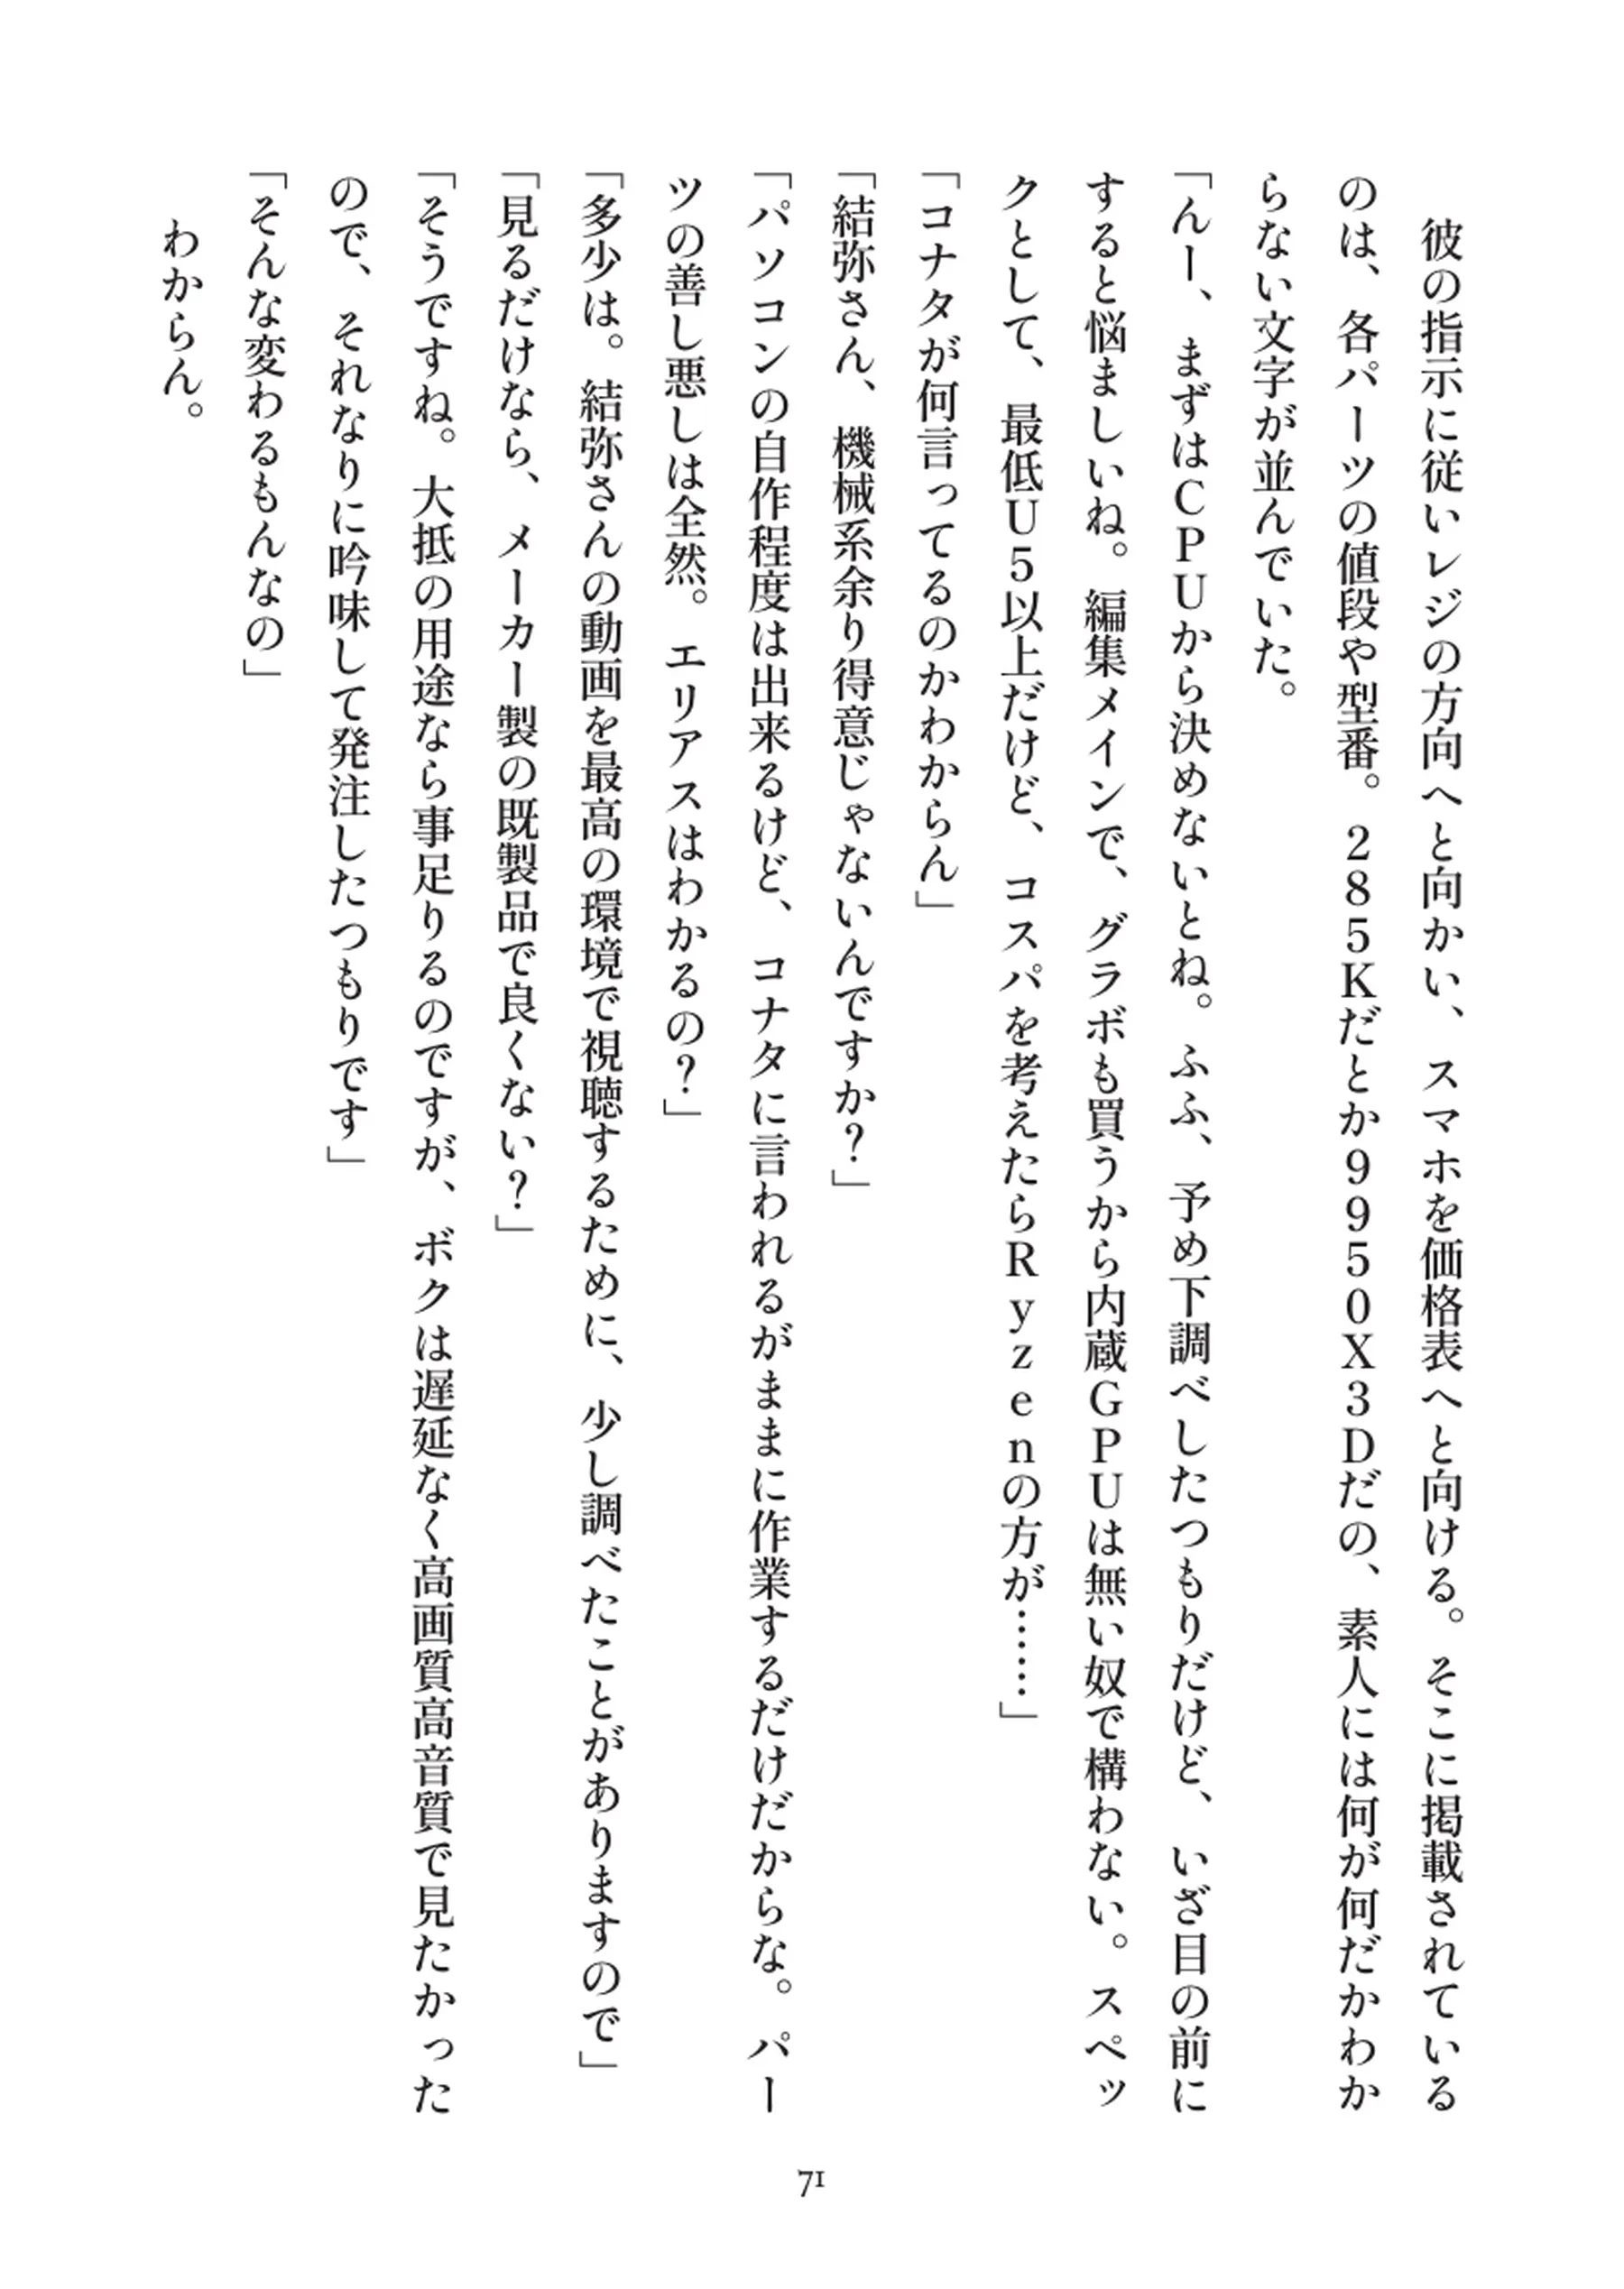 彼の指示に従いレジの方向へと向かい、スマホを価格表へと向ける。そこに掲載されている
のは、各パーツの値段や型番。２８５Ｋだとか９９５０Ｘ３Ｄだの、素人には何が何だかわか
らない文字が並んでいた。
「んー、まずはＣＰＵから決めないとね。ふふ、予め下調べしたつもりだけど、いざ目の前に
すると悩ましいね。編集メインで、グラボも買うから内蔵ＧＰＵは無い奴で構わない。スペッ
クとして、最低Ｕ５以上だけど、コスパを考えたらＲｙｚｅｎの方が……」
「コナタが何言ってるのかわからん」
「結弥さん、機械系余り得意じゃないんですか？」
「パソコンの自作程度は出来るけど、コナタに言われるがままに作業するだけだからな。パー
ツの善し悪しは全然。エリアスはわかるの？」
「多少は。結弥さんの動画を最高の環境で視聴するために、少し調べたことがありますので」
「見るだけなら、メーカー製の既製品で良くない？」
「そうですね。大抵の用途なら事足りるのですが、ボクは遅延なく高画質高音質で見たかった
ので、それなりに吟味して発注したつもりです」
「そんな変わるもんなの」
　わからん。
71